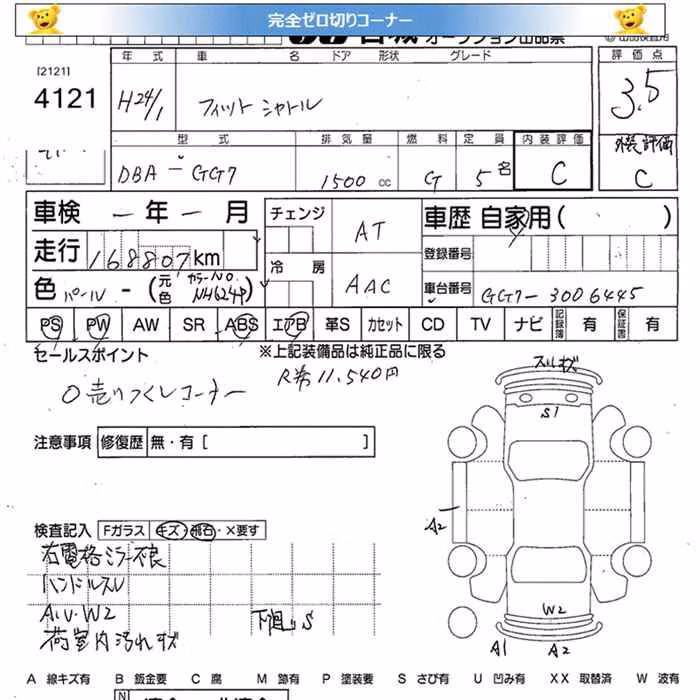 完全ゼロ切りコーナー
オークション出品票
[2121]
4121
年式 車名 ドア 形状 グレード 評価点
H24/1 フィットシャトル 3.5
型式 排気量 燃料 定員 内装評価 外装評価
DBA-GG7 1500cc G 5名 C C
車検 - 年 - 月 チェンジ AT 車歴 自家用( )
走行 168807km 登録番号
冷房 AAC
色 パール - (元色 カラーNO. NH624P 車台番号 GG7-3006445
PS PW AW SR ABS エアB 革S カセット CD TV ナビ 記録簿 有 保証書 有
セールスポイント ※上記装備品は純正品に限る
0売りつくしコーナー R券11,540円
スリキズ
S1
注意事項 修復歴 無・有 [ ]
A2
検査記入 Fガラス キズ・飛石・×要す
右電格ミラー不良
ハンドルスレ
A.U.W2 下回りS
荷室内汚れキズ
W2
A1 A2
A 線キズ有 B 鈑金要 C 腐 M 跡有 P 塗装要 S さび有 U 凹み有 XX 取替済 W 波有